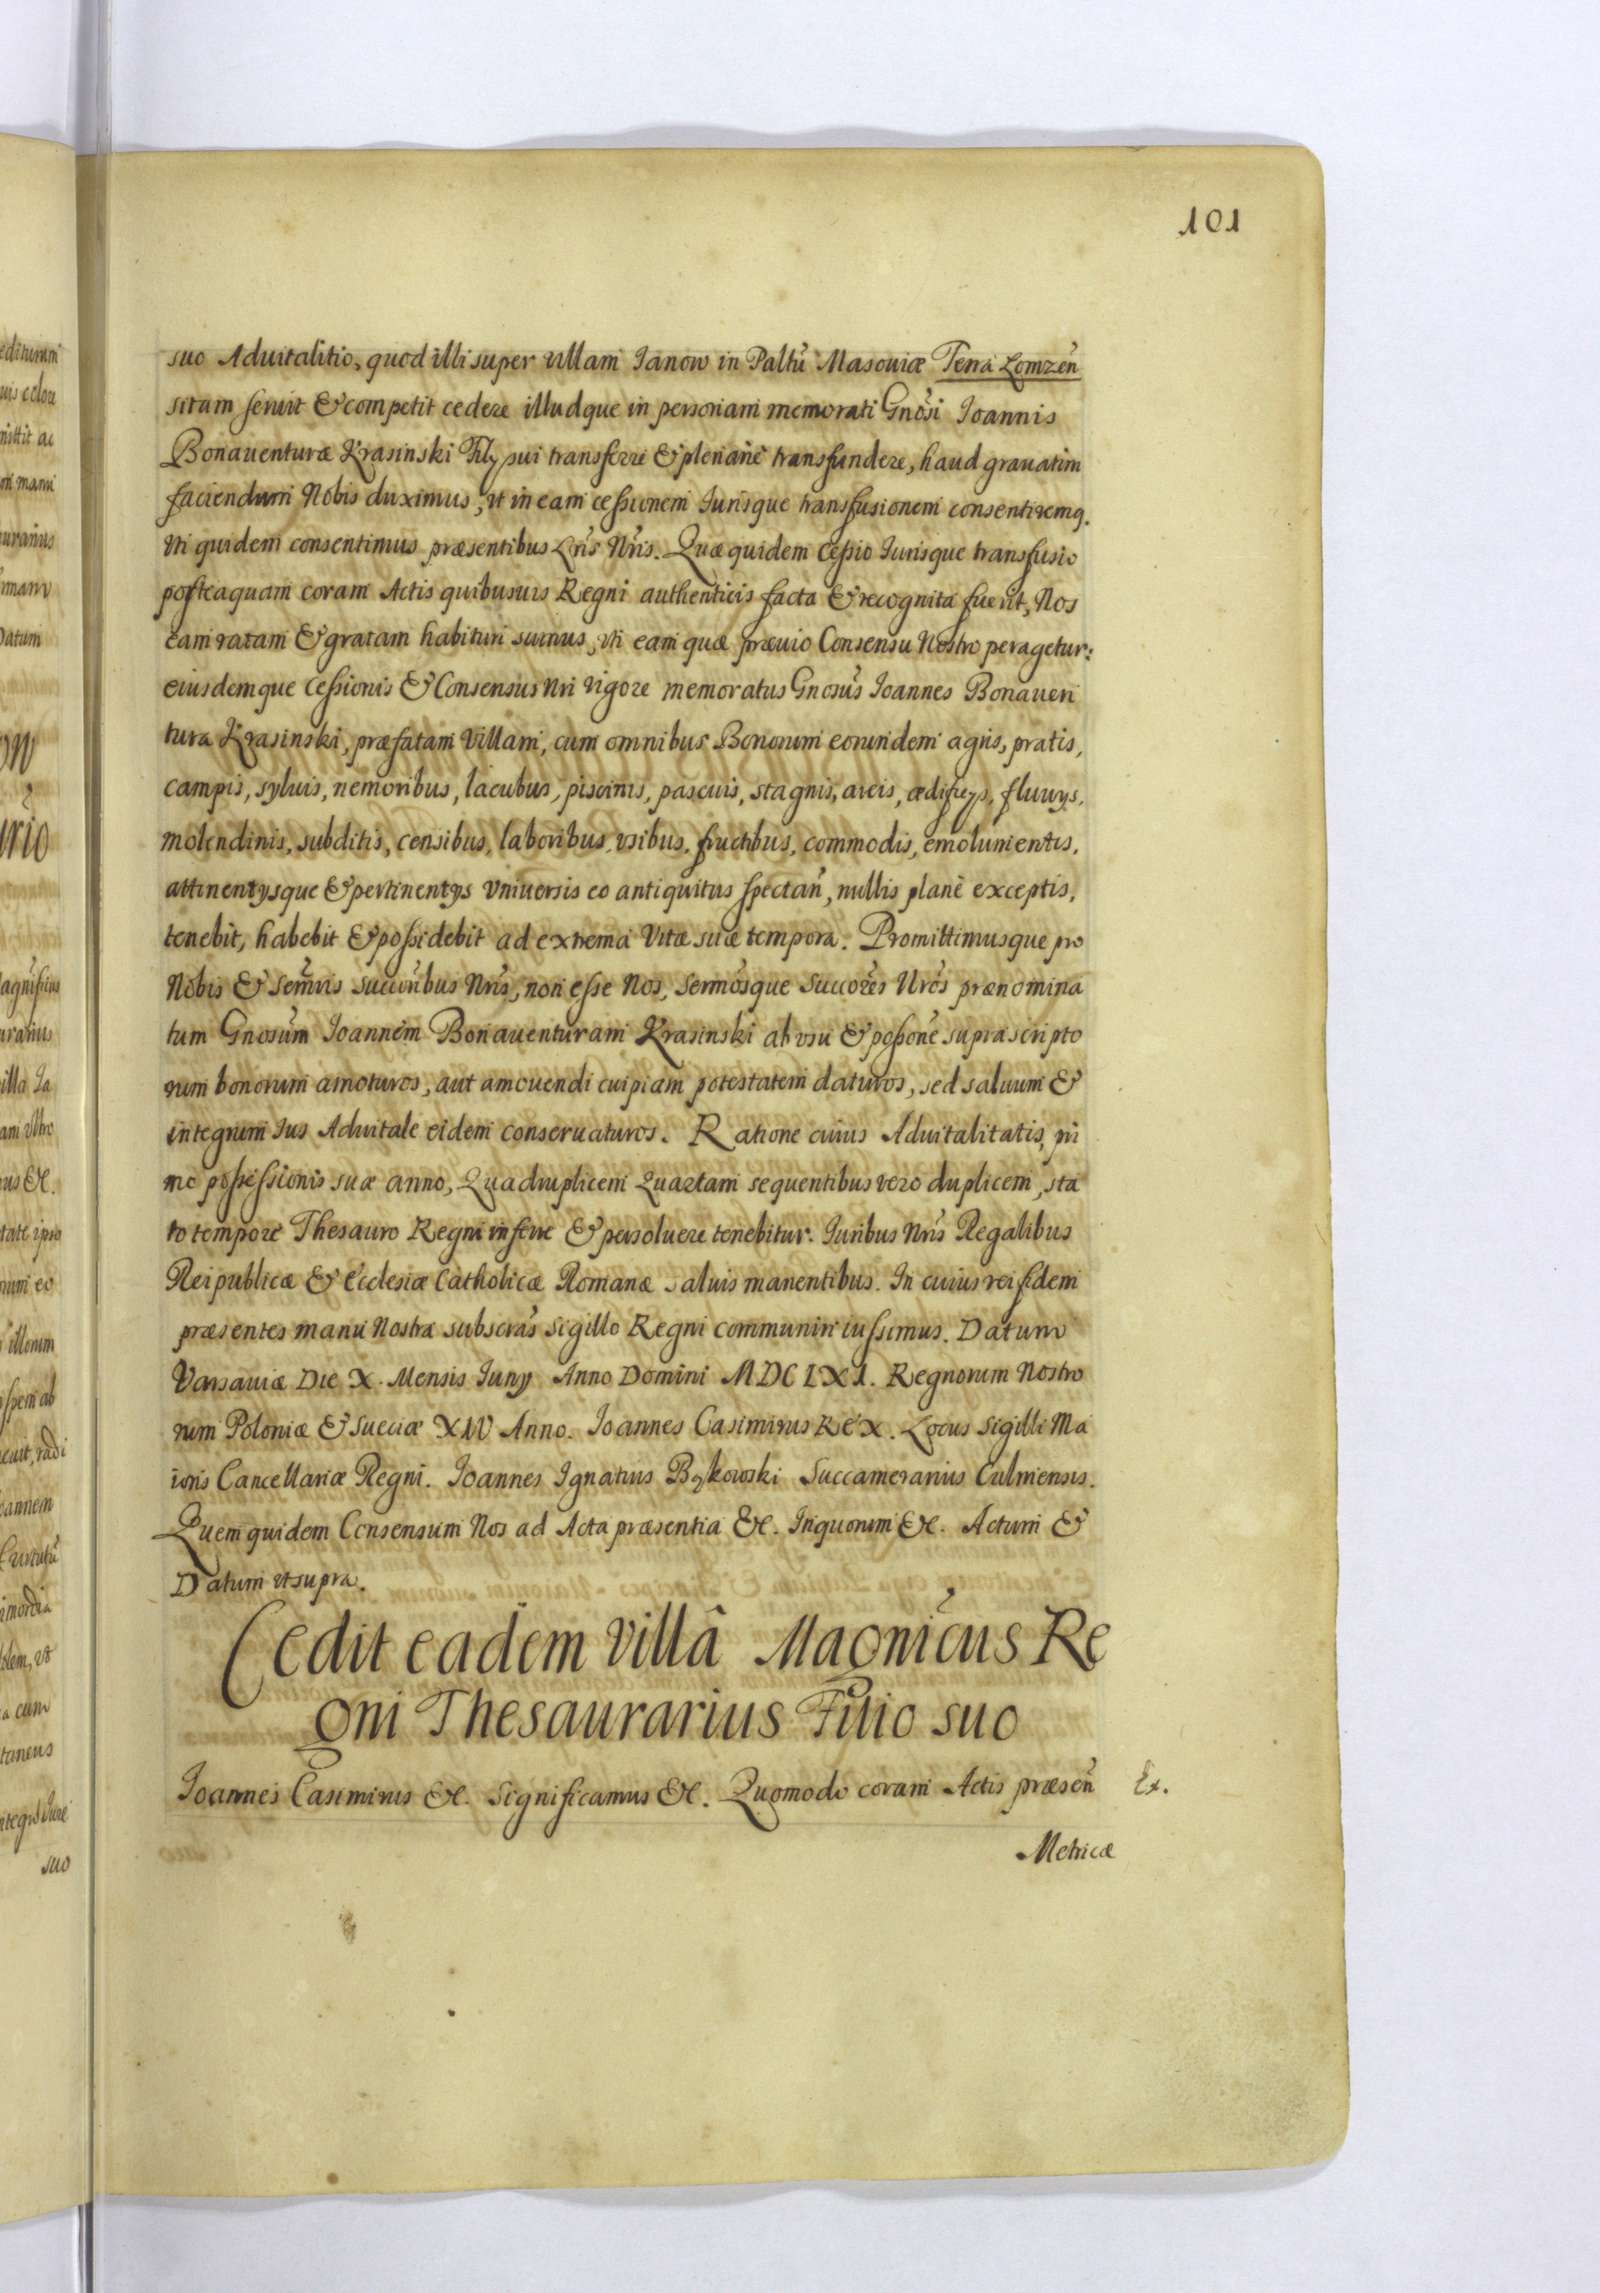 101
suo Aduitalitio, quod illi super villam Janow in Paltũ Masouiæ Terra Lomzen̄
sitam seruit & competit cedere illudque in personam memorati Gnõsi Joannis
Bonauenturæ Krasinski Filÿ sui transferre & plenanè transfundere, haud grauatim
faciendum Nobis duximus, vt in eam cessionem Jurisque transfusionem consentiremq.
Vti quidem consentimus præsentibus Lr̃is Nr̃is. Quæ quidem Cessio Jurisque transfusio
posteaquam coram Actis quibusuis Regni authenticis facta & recognita fuerit, Nos
eam ratam & gratam habituri sumus, vti eam quæ præuio Consensu Nostro peragetur:
eiusdemque Cessionis & Consensus Nri vigore memoratus Gnosũs Joannes Bonauen
tura Krasinski, præfatam Villam, cum omnibus Bonorum eorundem agris, pratis,
campis, syluis, nemoribus, lacubus, piscinis, pascuis, stagnis, areis, ædificÿs, fluuÿs,
molendinis, subditis, censibus, laboribus, vsibus, fructibus, commodis, emolumentis,
attinentÿsque & pertinentÿs Vniuersis eo antiquitus spectañ, nullis planè exceptis,
tenebit, habebit & possidebit ad extrema Vitæ suæ tempora. Promittimusque pro
Nobis & Serm̃is succoribus Nr̃is, non esse Nos, Sermõsque Succorẽs Nrõs prænomina
tum Gnosũm Joannem Bonauenturam Krasinski ab vsu & possonẽ suprascripto
rum bonorum amoturos, aut amouendi cuipiam potestatem daturos, sed saluum &
integrum Jus Aduitale eidem conseruaturos. Ratione cuius Aduitalitatis, pri
mo possessionis suæ anno, Quadruplicem Quartam sequentibus vero duplicem, sta
to tempore Thesauro Regni inferre & persoluere tenebitur. Juribus Nr̃is Regalibus
Reipublicæ & Ecclesiæ Catholicæ Romanæ saluis manentibus. In cuius rei fidem
præsentes manu Nostra subscrãs Sigillo Regni communiri iussimus. Datum
Varsauiæ Die X. Mensis Junÿ Anno Domini MDCLXI. Regnorum Nostro
rum Poloniæ & Sueciæ XIII Anno. Joannes Casimirus Rex. Locus Sigilli Ma
ioris Cancellariæ Regni. Joannes Ignatius Bąkowski Succamerarius Culmensis.
Quem quidem Consensum Nos ad Acta præsentia &c. In quorum &c. Actum &
Datum vt supra.
Cedit eadem Villâ Magnicus Re
gni Thesaurarius Filio suo
Joannes Casimirus &c. Significamus &c. Quomodo coram Actis præsen̄ Ex.
Metricæ